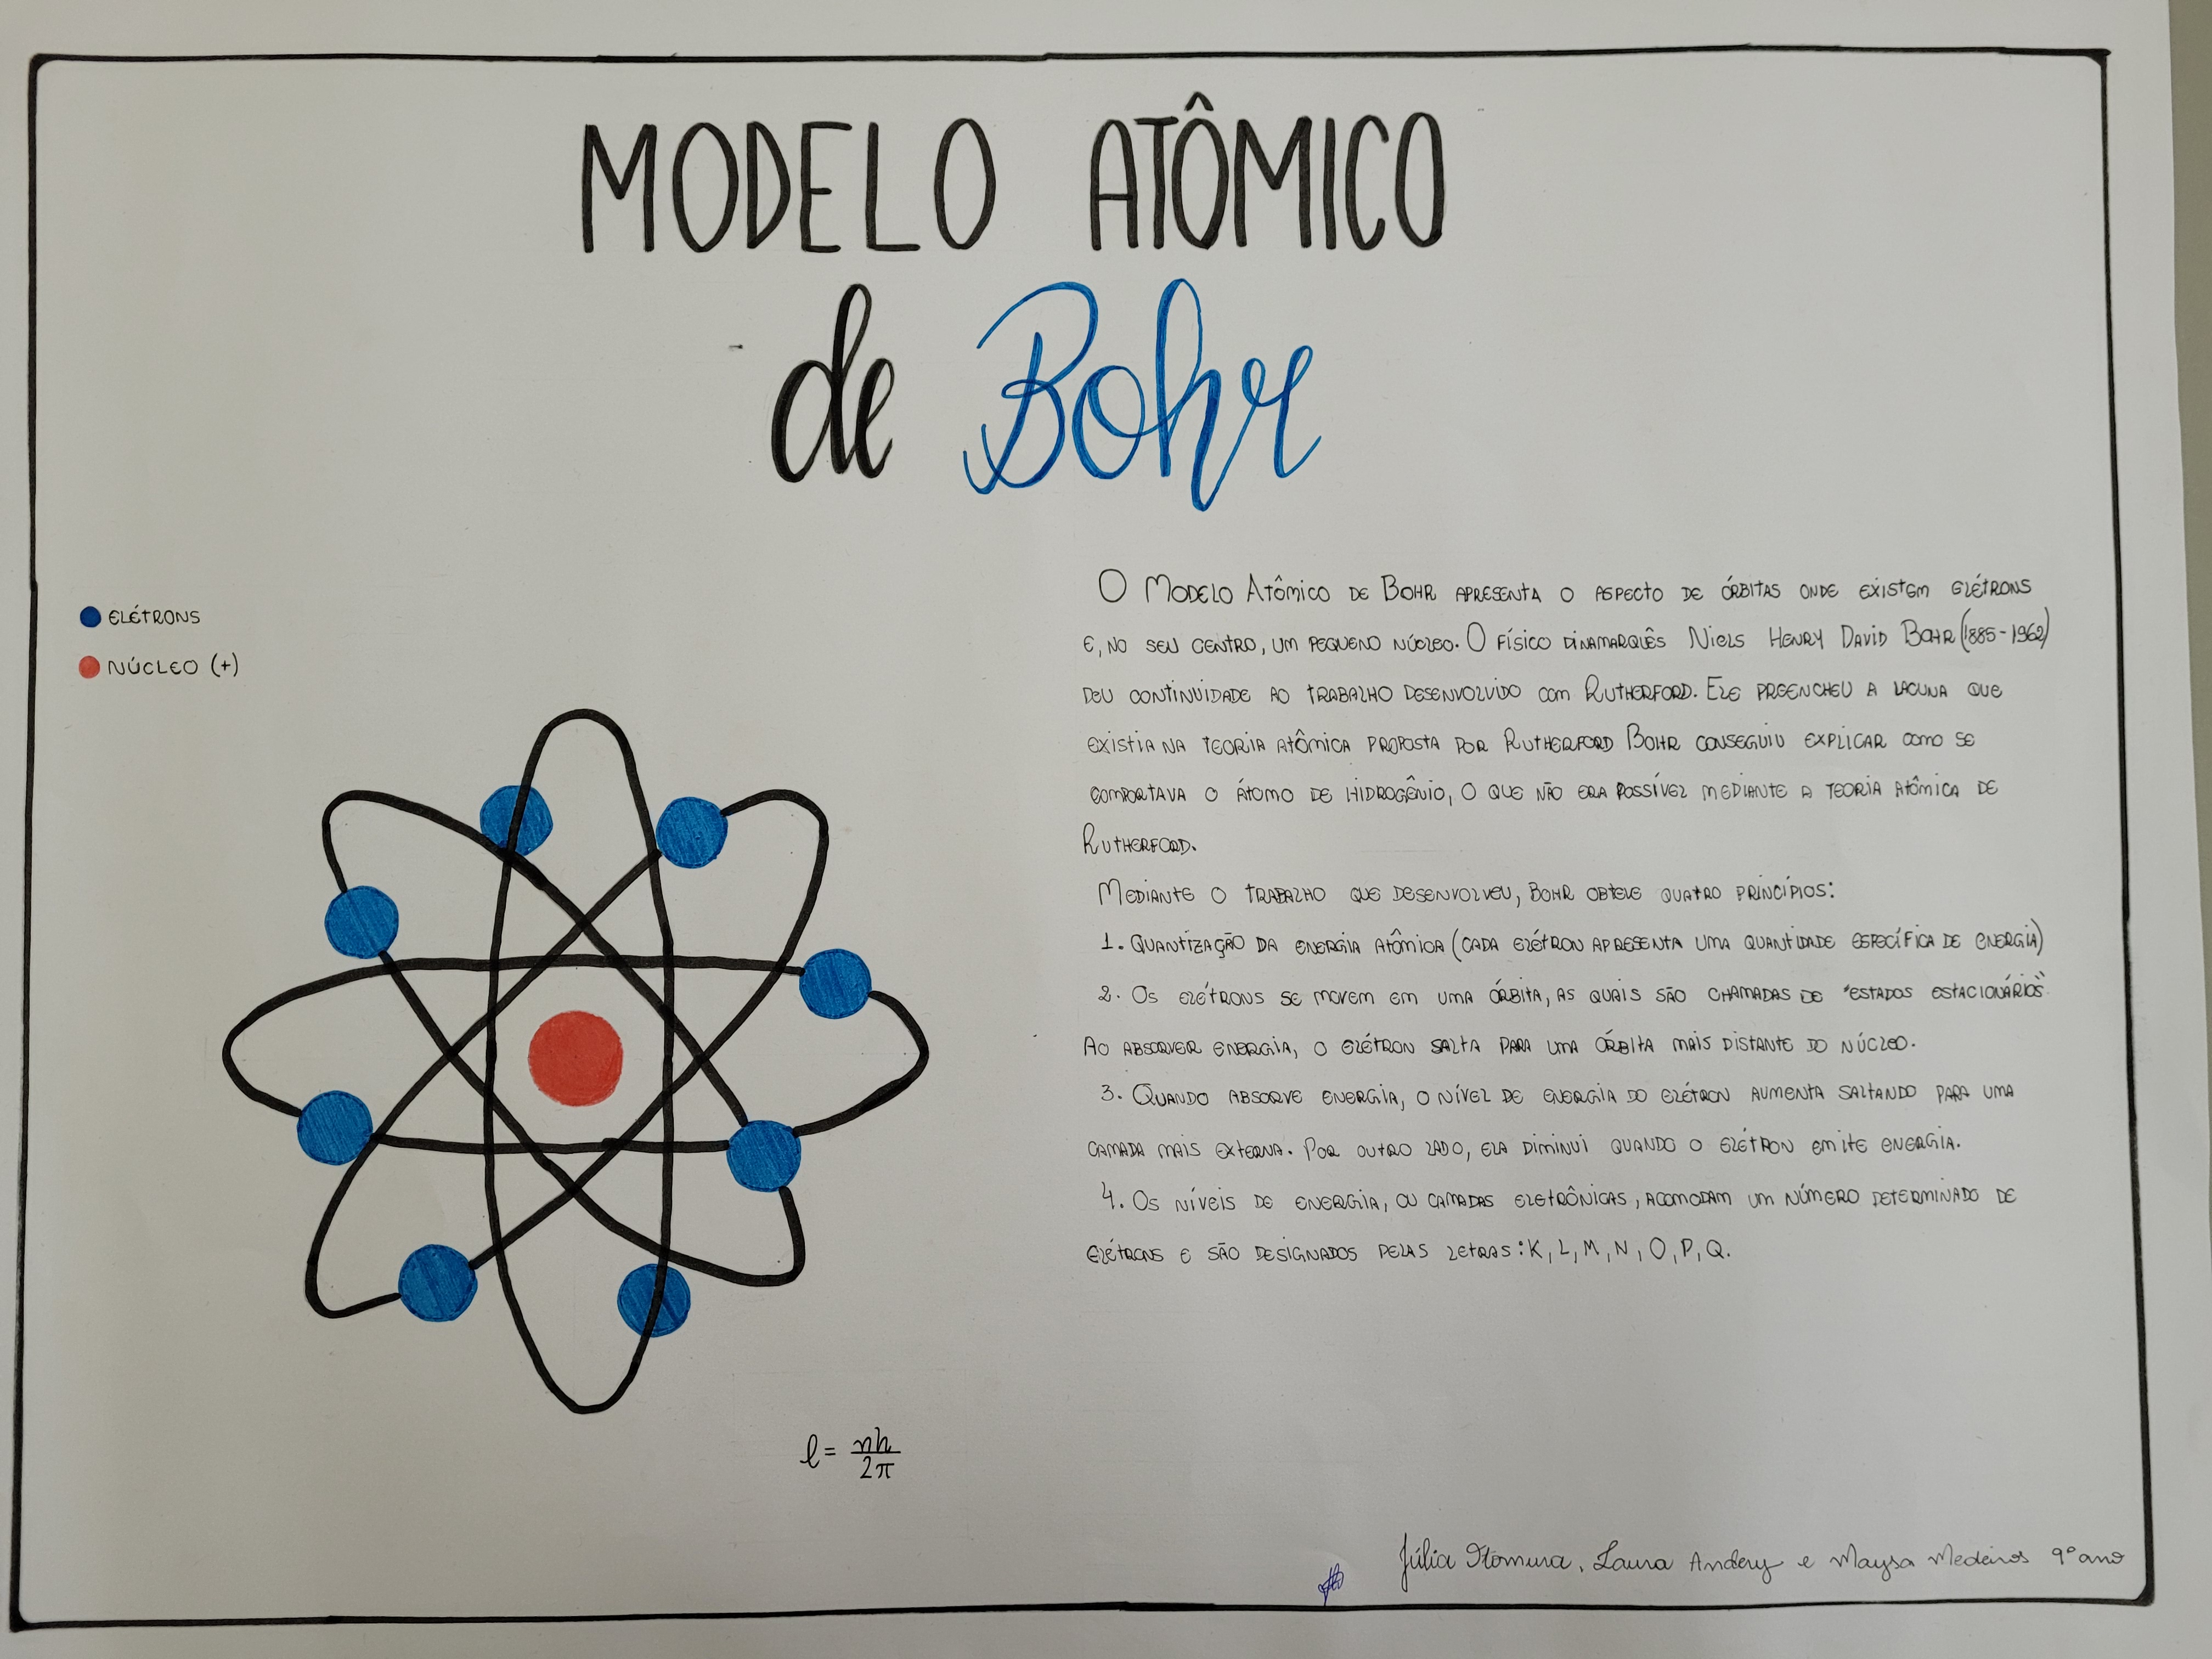 MODELO ATÔMICO
de Bohr
ELÉTRONS
NÚCLEO (+)
O MODELO ATÔMICO DE BOHR APRESENTA O ASPECTO DE ÓRBITAS ONDE EXISTEM ELÉTRONS
E, NO SEU CENTRO, UM PEQUENO NÚCLEO. O FÍSICO DINAMARQUÊS NIELS HENRY DAVID BOHR (1885-1962)
DEU CONTINUIDADE AO TRABALHO DESENVOLVIDO COM RUTHERFORD. ELE PREENCHEU A LACUNA QUE
EXISTIA NA TEORIA ATÔMICA PROPOSTA POR RUTHERFORD BOHR CONSEGUIU EXPLICAR COMO SE
COMPORTAVA O ÁTOMO DE HIDROGÊNIO, O QUE NÃO ERA POSSÍVEL MEDIANTE A TEORIA ATÔMICA DE
RUTHERFORD.
MEDIANTE O TRABALHO QUE DESENVOLVEU, BOHR OBTEVE QUATRO PRINCÍPIOS:
1. QUANTIZAÇÃO DA ENERGIA ATÔMICA (CADA ELÉTRON APRESENTA UMA QUANTIDADE ESPECÍFICA DE ENERGIA)
2. OS ELÉTRONS SE MOVEM EM UMA ÓRBITA, AS QUAIS SÃO CHAMADAS DE "ESTADOS ESTACIONÁRIOS"
AO ABSORVER ENERGIA, O ELÉTRON SALTA PARA UMA ÓRBITA MAIS DISTANTE DO NÚCLEO.
3. QUANDO ABSORVE ENERGIA, O NÍVEL DE ENERGIA DO ELÉTRON AUMENTA SALTANDO PARA UMA
CAMADA MAIS EXTERNA. POR OUTRO LADO, ELA DIMINUI QUANDO O ELÉTRON EMITE ENERGIA.
4. OS NÍVEIS DE ENERGIA, OU CAMADAS ELETRÔNICAS, ACOMODAM UM NÚMERO DETERMINADO DE
ELÉTRONS E SÃO DESIGNADOS PELAS LETRAS: K, L, M, N, O, P, Q.
l = nh/2π
Júlia Itomura, Laura Andery e Maysa Medeiros 9º ano